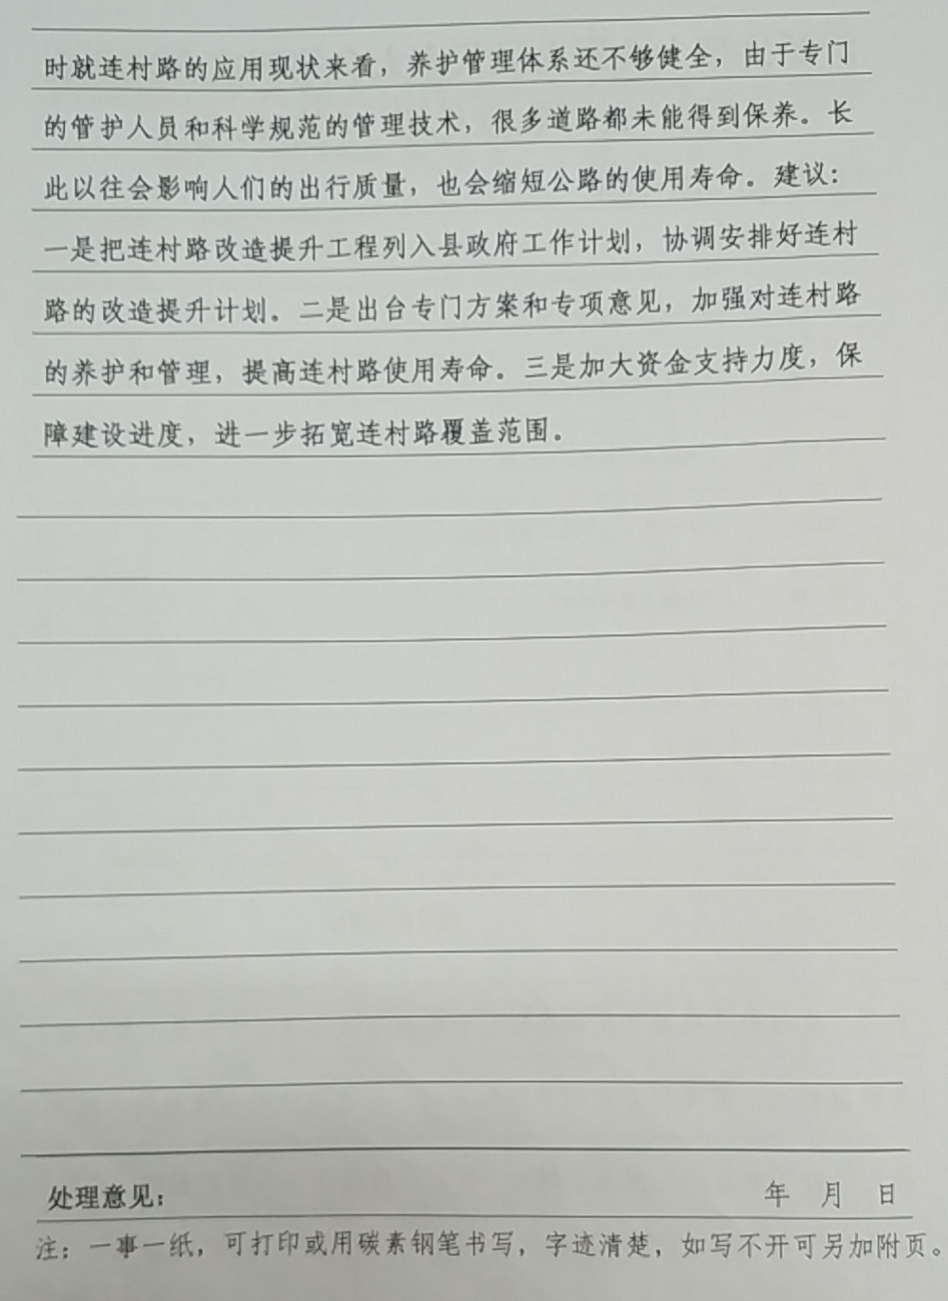 时就连村路的应用现状来看，养护管理体系还不够健全，由于专门
的管护人员和科学规范的管理技术，很多道路都未能得到保养。长
此以往会影响人们的出行质量，也会缩短公路的使用寿命。建议：
一是把连村路改造提升工程列入县政府工作计划，协调安排好连村
路的改造提升计划。二是出台专门方案和专项意见，加强对连村路
的养护和管理，提高连村路使用寿命。三是加大资金支持力度，保
障建设进度，进一步拓宽连村路覆盖范围。
处理意见： 年 月 日
注：一事一纸，可打印或用碳素钢笔书写，字迹清楚，如写不开可另加附页。